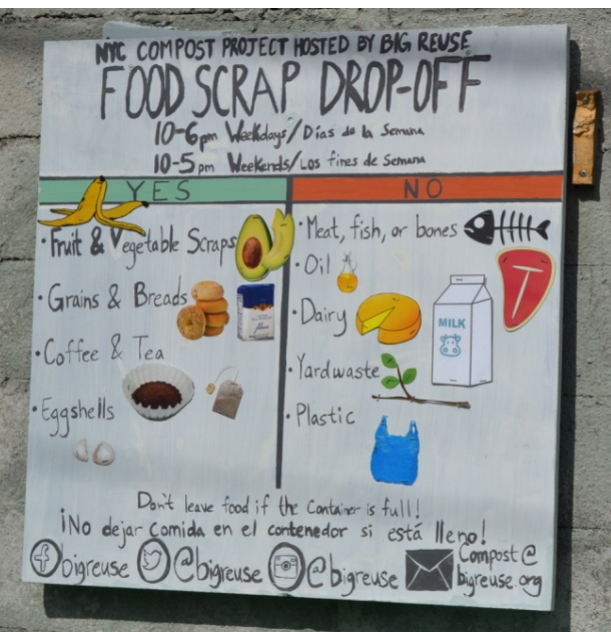 NYC COMPOST PROJECT HOSTED BY BIG REUSE
FOOD SCRAP DROP-OFF
10-6pm Weekdays/Días de la Semana
10-5pm Weekends/Los fines de Semana
YES
• Fruit & Vegetable Scraps
• Grains & Breads
• Coffee & Tea
• Eggshells
NO
• Meat, fish, or bones
• Oil
• Dairy
MILK
• Yardwaste
• Plastic
Don't leave food if the container is full!
¡No dejar comida en el contenedor si está lleno!
bigreuse @bigreuse @bigreuse Compost@
bigreuse.org